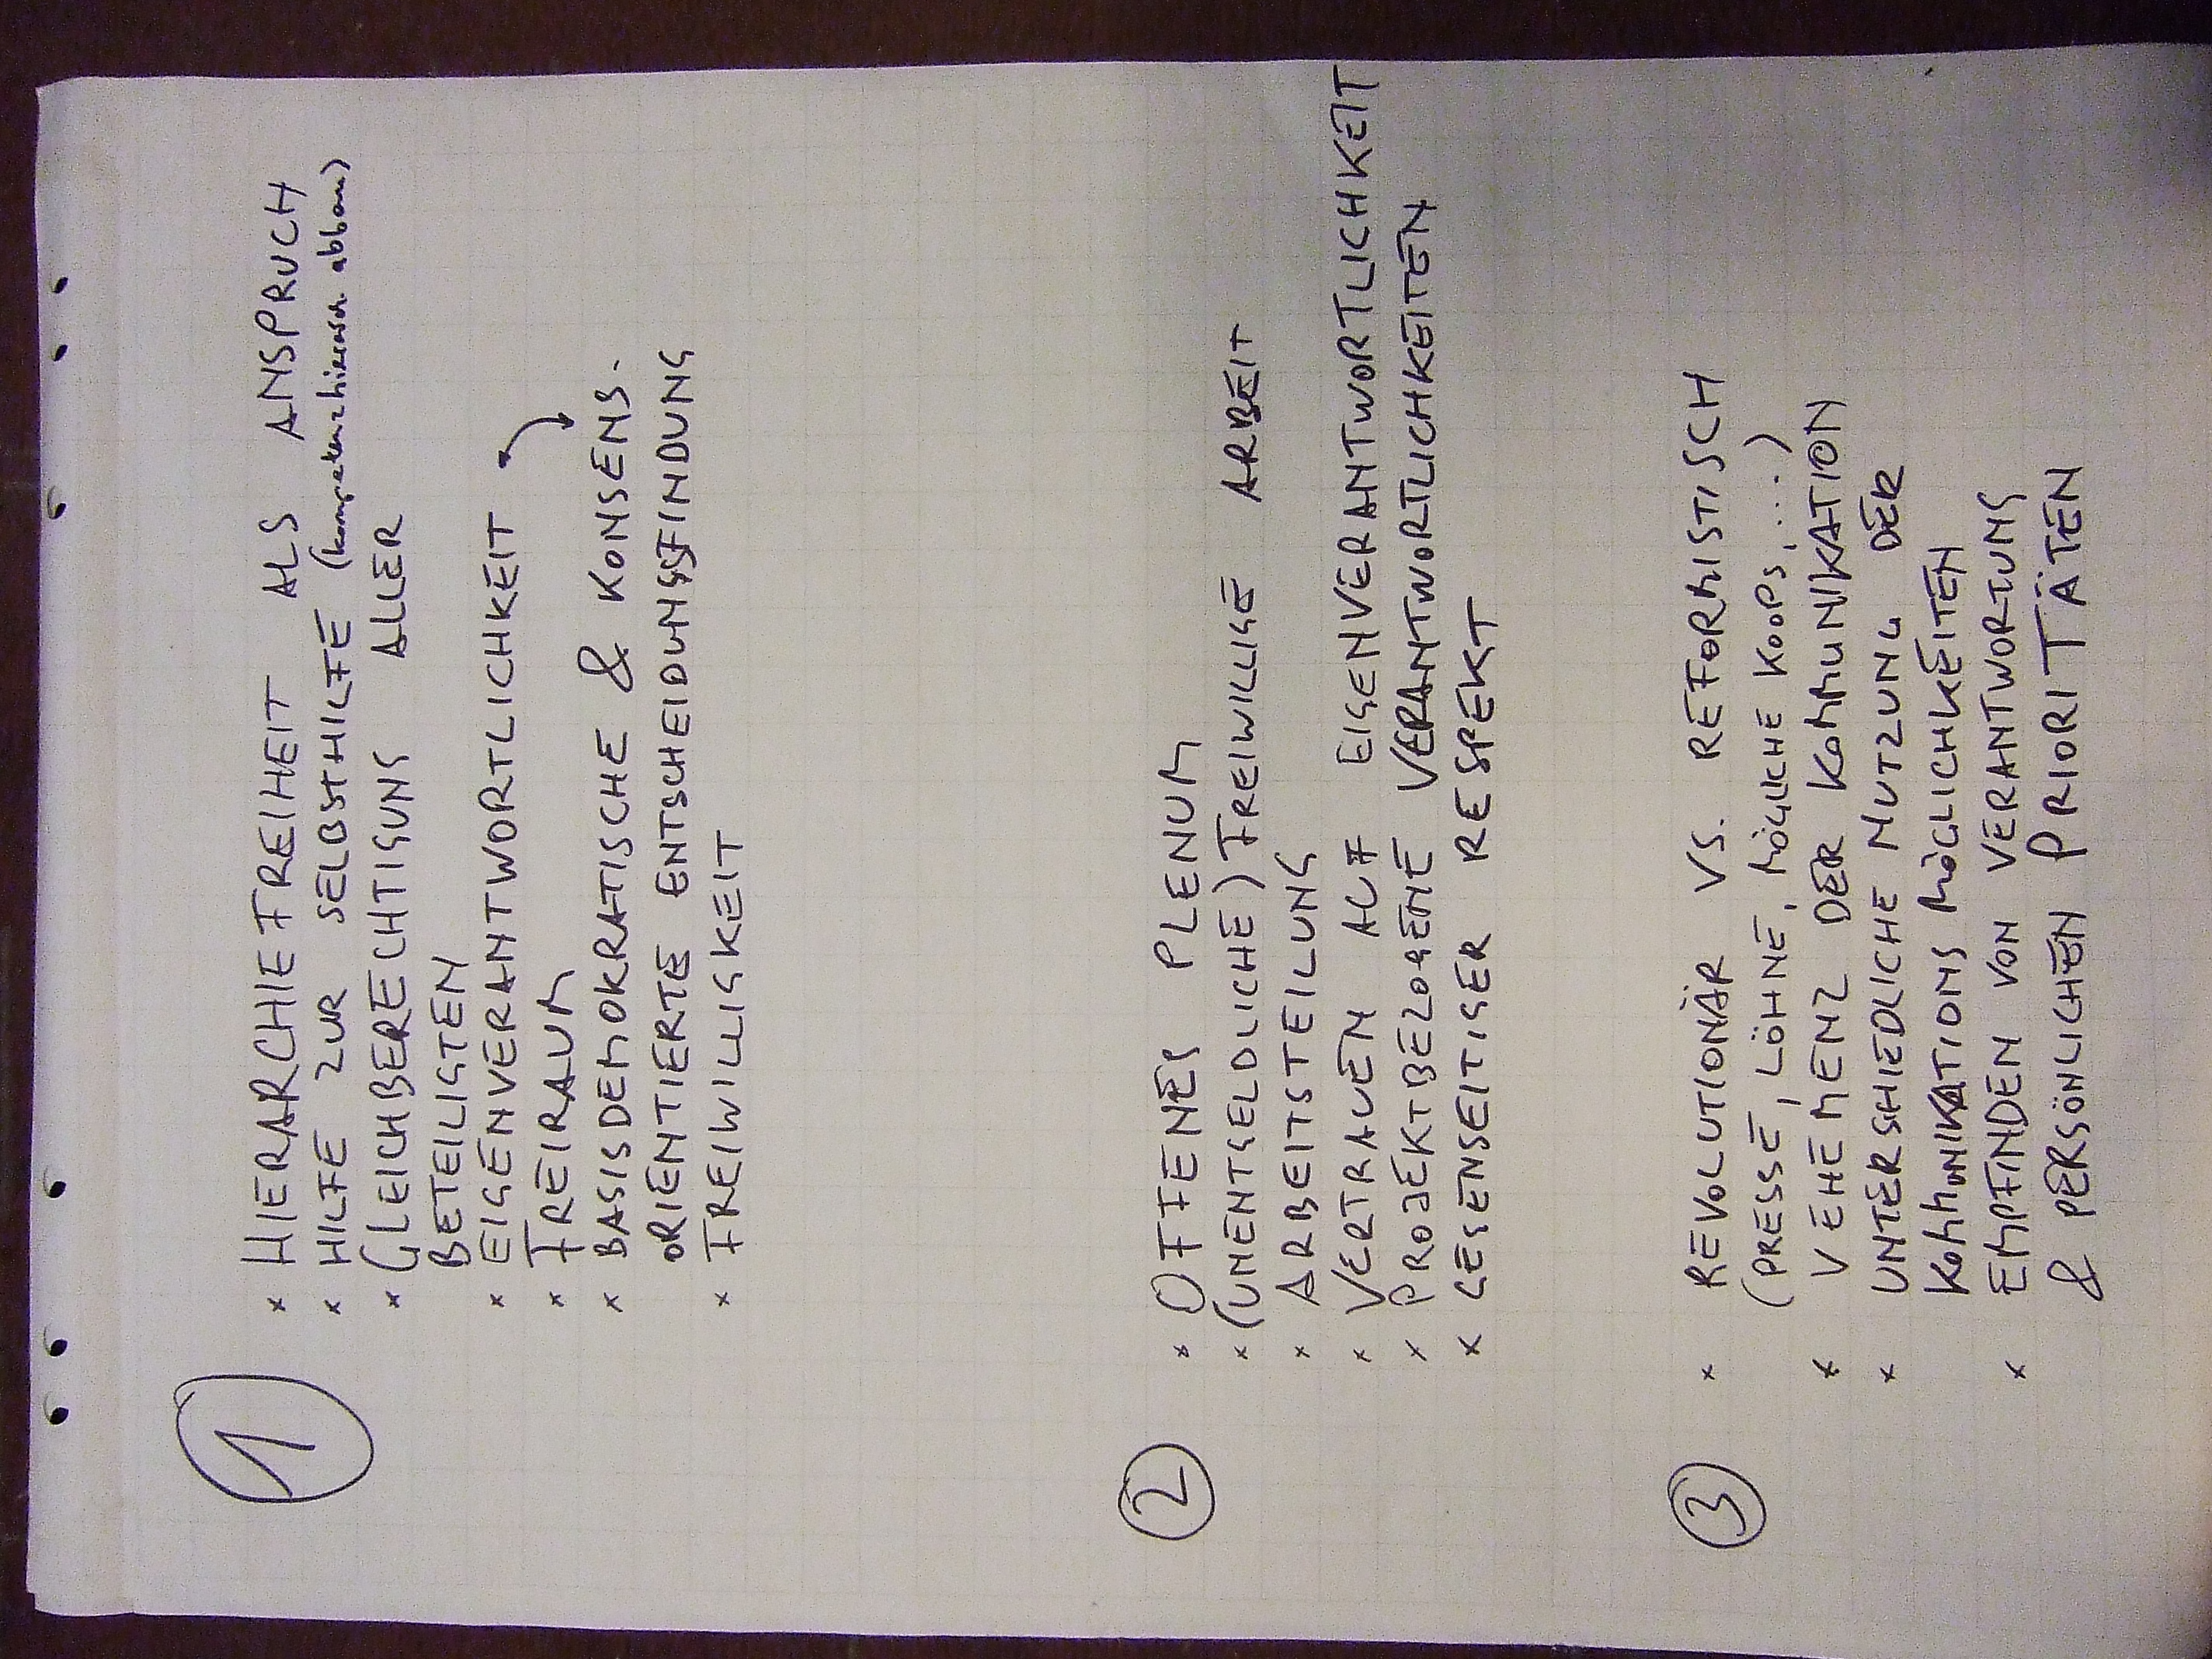 1
x HIERARCHIEFREIHEIT ALS ANSPRUCH
x HILFE ZUR SELBSTHILFE (kompetenzhierarch. abbau)
x GLEICHBERECHTIGUNG ALLER
BETEILIGTEN
x EIGENVERANTWORTLICHKEIT
x FREIRAUM
x BASISDEMOKRATISCHE & KONSENS-
ORIENTIERTE ENTSCHEIDUNGSFINDUNG
x FREIWILLIGKEIT
2
x OFFENES PLENUM
x (UNENTGELDLICHE) FREIWILLIGE ARBEIT
x ARBEITSTEILUNG
x VERTRAUEN AUF EIGENVERANTWORTLICHKEIT
x PROJEKTBEZOGENE VERANTWORTLICHKEITEN
x GEGENSEITIGER RESPEKT
3
x REVOLUTIONÄR VS. REFORMISTISCH
(PRESSE, LÖHNE, MÖGLICHE KOOPS, ...)
x VEHEMENZ DER KOMMUNIKATION
x UNTERSCHIEDLICHE NUTZUNG DER
KOMMUNIKATIONS MÖGLICHKEITEN
x EMPFINDEN VON VERANTWORTUNG
& PERSÖNLICHEN PRIORITÄTEN